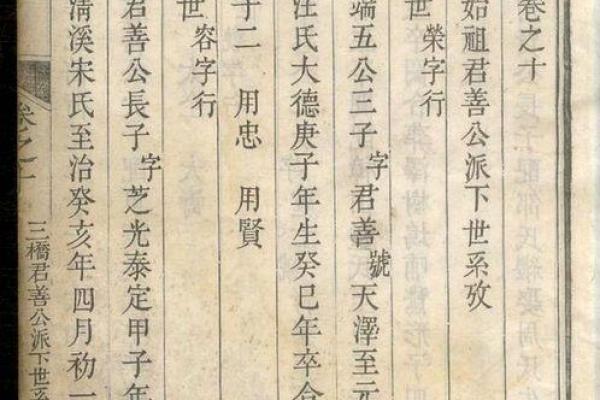 卷之十
始祖君善公派下世系攷
世 榮字行
端五公三子字君善號天澤至元
汪氏大德庚子年生癸巳年卒合
子二 用忠 用賢
世 容字行
君善公長子字芝光泰定甲子年
清溪宋氏至治癸亥年四月初一
卷之十
三橋君善公派下世系